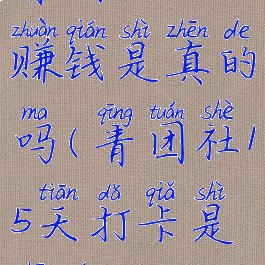 zhuàn qián shì zhēn de
赚钱是真的
ma qīng tuán shè
吗(青团社1
tiān dǎ qiǎ shì
5天打卡是